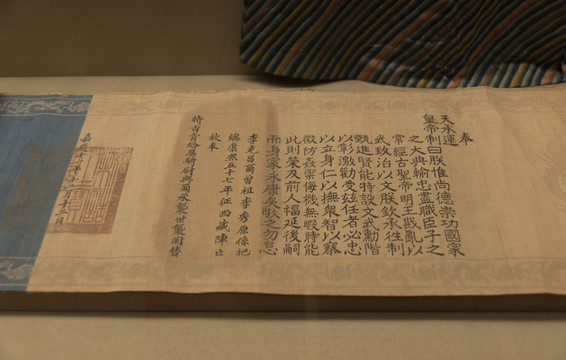 奉
天承運
皇帝制曰朕惟尚德崇功國家
之大典輸忠盡職臣子之
常經古聖帝明王戡亂以
武致治以文朕欽承往制
甄進賢能特設文武勳階
以彰激勸受玆任者必忠
以立身仁以撫衆智以察
微防姦禦侮機無暇時能
此則榮及前人福延後嗣
而身家永康矣欽之勿怠
李光昌爾曾祖李秀原係把
總康熙五十七年征西藏陣亡
欽奉
特旨賞給恩騎尉與爾承襲世襲罔替
嘉慶